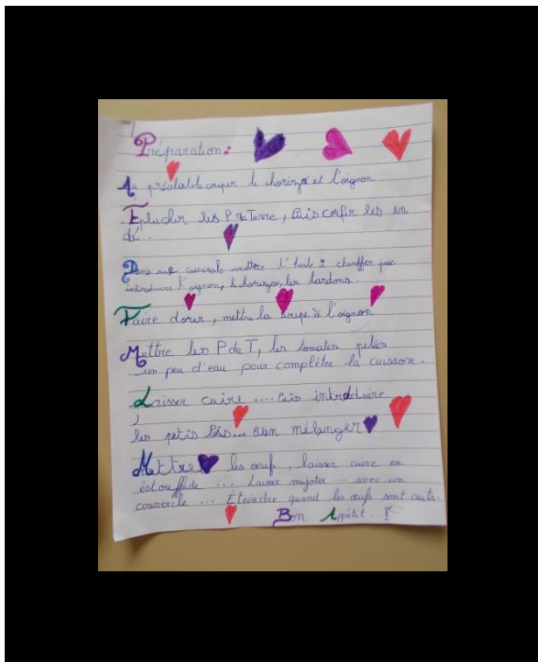 Préparation:
Au préalable couper le chorizo et l'oignon
Eplucher les P. de Terre, Puis couper les en
dé.
Dans une casserole mettre l'huile à chauffer puis
introduire l'oignon, le chorizo, les lardons.
Faire dorer, mettre la soupe à l'oignon
Mettre les P de T, les tomates pelées
un peu d'eau pour complèter la cuisson.
Laisser cuire .... Puis introduire
les petis Pois... Bien mélanger
Mettre les oeuf, laisser cuire en
éstouffade ... Laisser mijoter ... avec un
couvercle ... Eteindre quand les oeufs sont cuits.
Bon Appétit...!